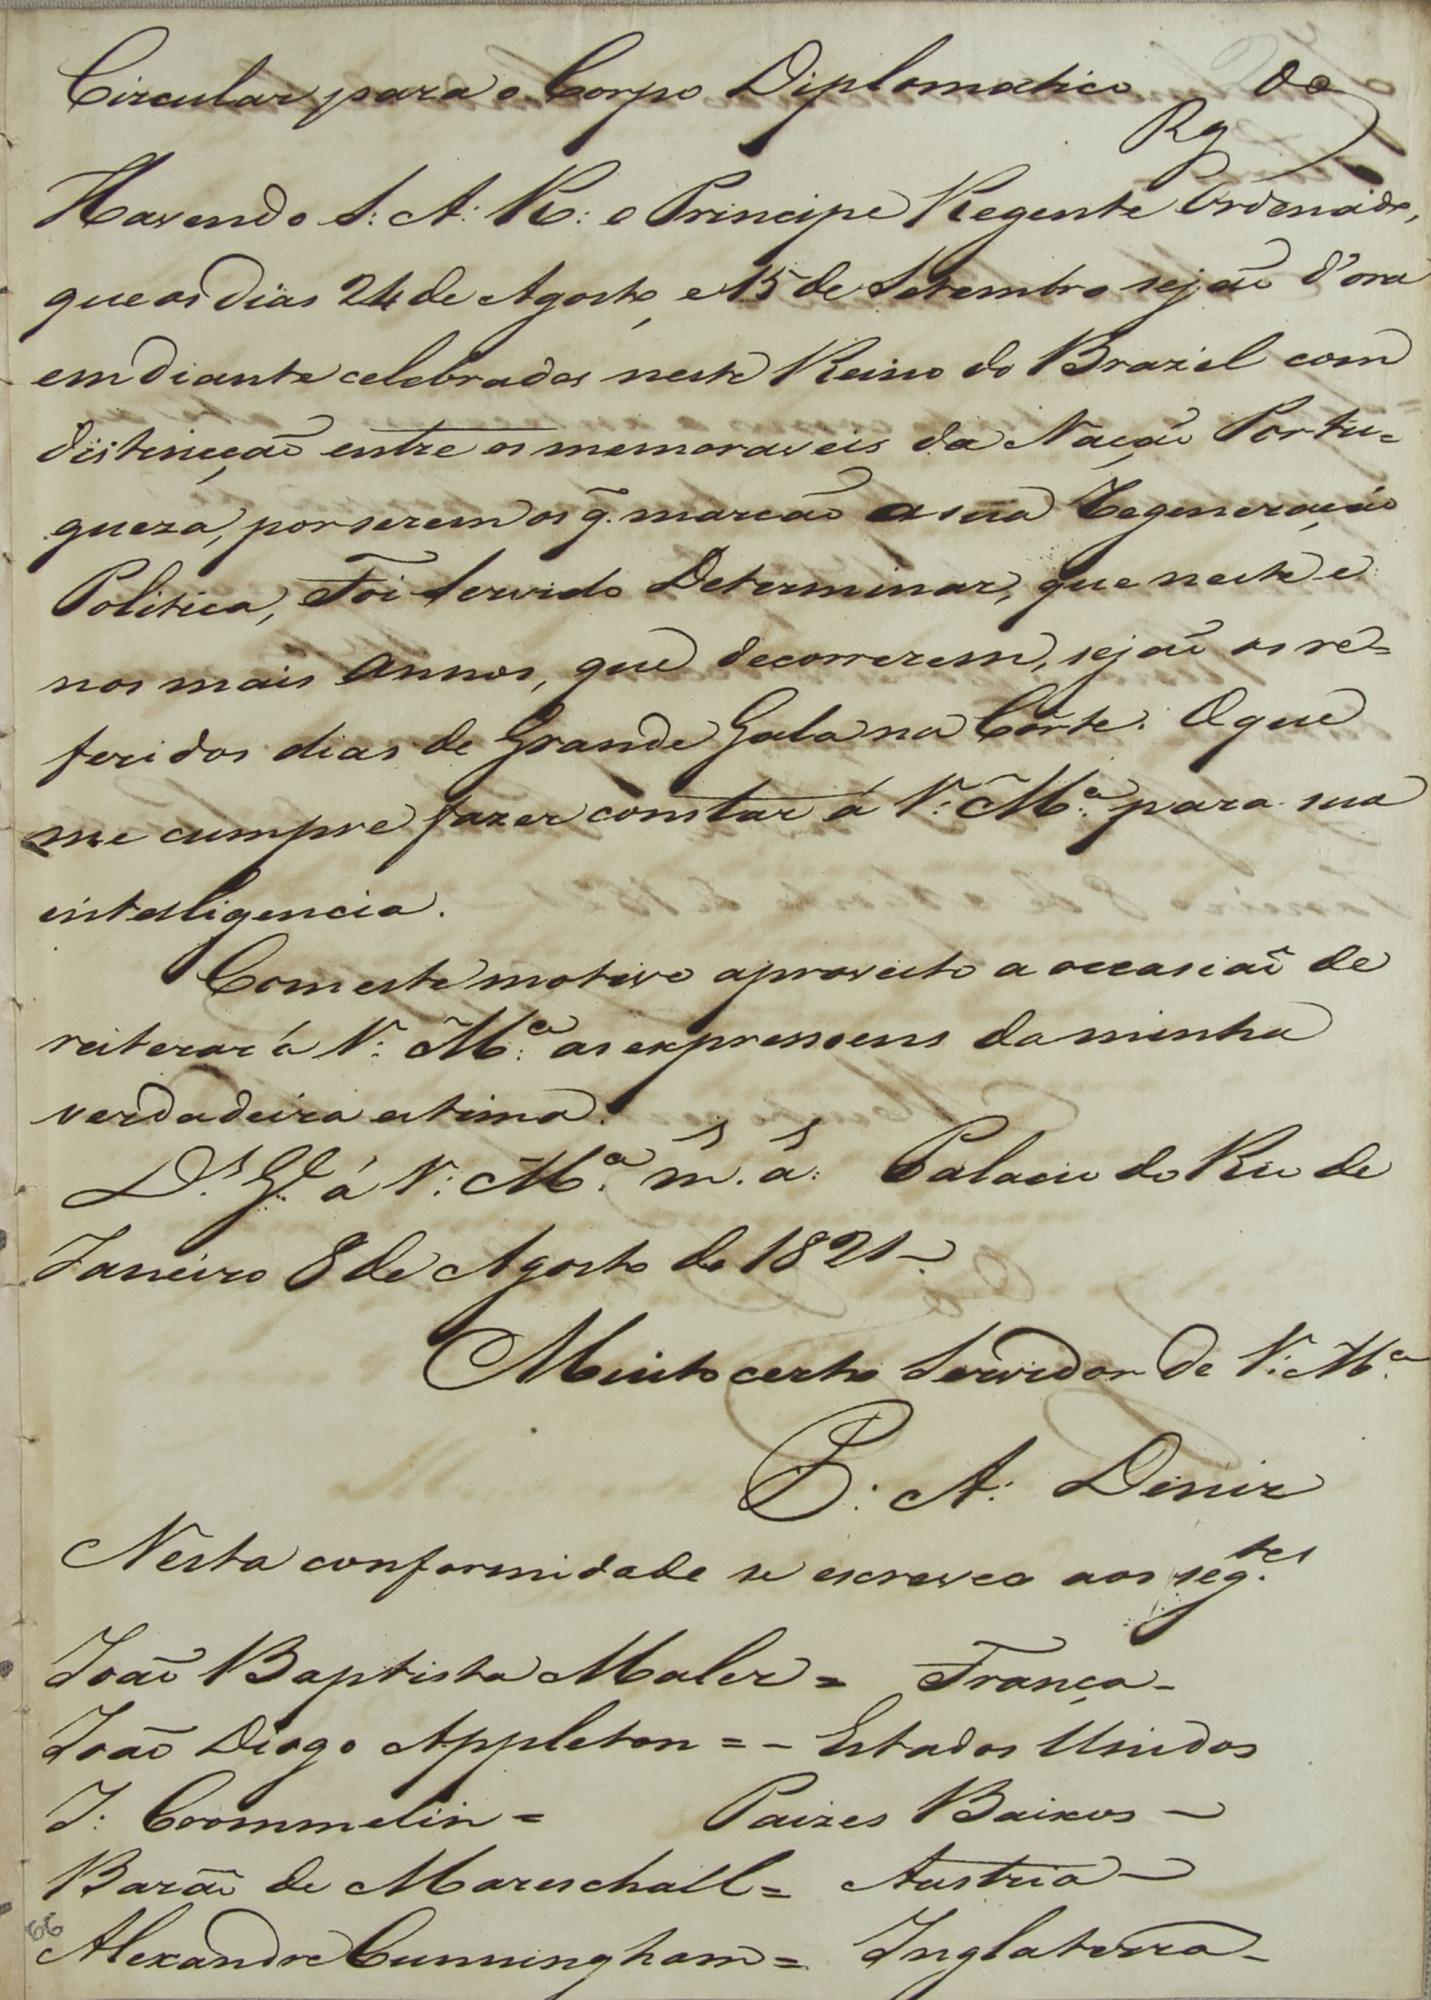 Circular para o Corpo Diplomatico
Rg
Havendo S: A: R: o Principe Regente Ordenado,
que os dias 24 de Agosto, e 15 de Setembro sejaõ d'ora
em diante celebrados neste Reino do Brazil com
distincçaõ entre os memoraveis da Naçaõ Portu=
gueza, por serem os q̃. marcaõ a sua Regeneraçaõ
Politica, Foi Servido Determinar, que neste e
nos mais annos, que decorrerem, sejaõ os re=
feridos dias de Grande Gala na Côrte. O que
me cumpre fazer constar á V: M.ce para sua
intelligencia.
Com este motivo aproveito a occasiaõ de
reiterar á V: M.ce as expressoens da minha
verdadeira estima.
D.s G.e á V: M.ce m.s a.s Palacio do Rio de
Janeiro 8 de Agosto de 1821 -
Muito certo Servidor de V: M.ce
P: A: Diniz
Nesta conformidade se escreveo aos seg.tes
Joaõ Baptista Maler = França -
Joaõ Diogo Appleton = - Estados Unidos
J: Crommelin = Paizes Baixos -
Baraõ de Mareschall = Austria -
Alexandre Cunningham = Inglaterra -
66